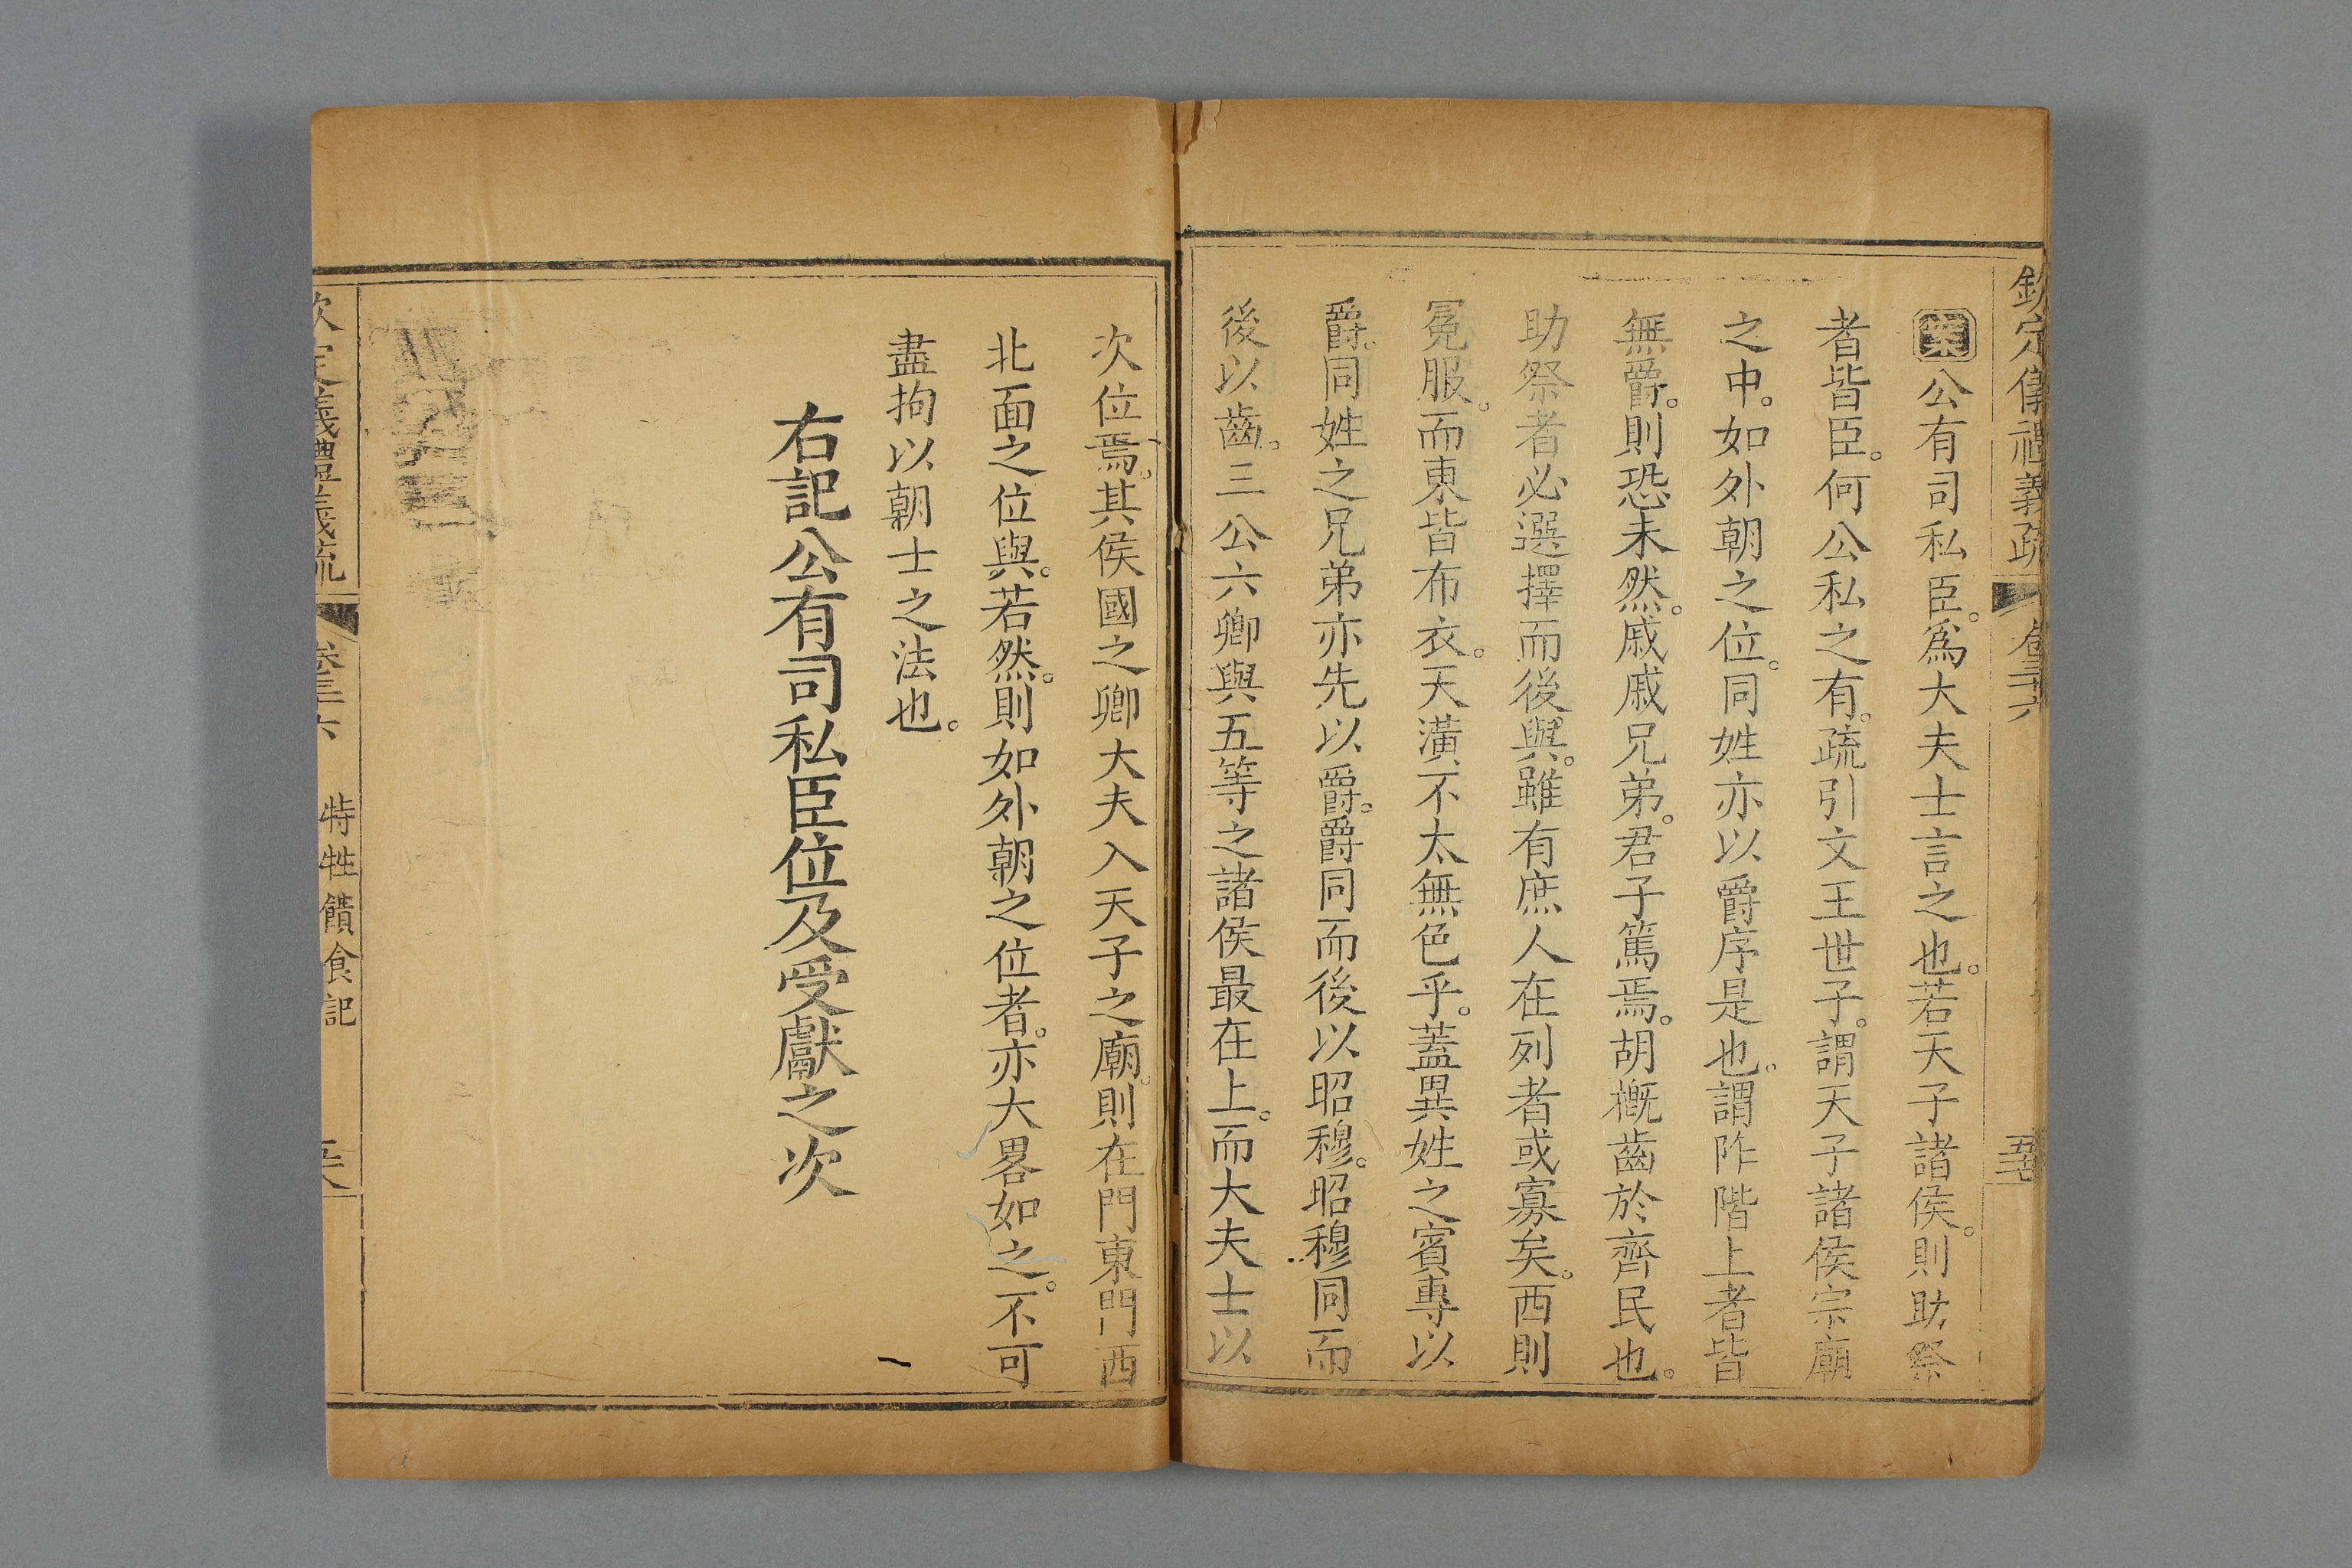 欽定儀禮義疏 卷三十六
案公有司私臣。爲大夫士言之也。若天子諸侯。則助祭
者皆臣。何公私之有。疏引文王世子。謂天子諸侯宗廟
之中。如外朝之位。同姓亦以爵序是也。謂阼階上者皆
無爵。則恐未然。戚戚兄弟。君子篤焉。胡槪齒於齊民也。
助祭者必選擇而後與。雖有庶人在列者或寡矣。西則
冕服。而東皆布衣。天潢不太無色乎。蓋異姓之賓專以
爵。同姓之兄弟亦先以爵。爵同而後以昭穆。昭穆同而
後以齒。三公六卿與五等之諸侯最在上。而大夫士以
次位焉。其侯國之卿大夫入天子之廟。則在門東門西
北面之位與。若然。則如外朝之位者。亦大畧如之。不可
盡拘以朝士之法也。
右記公有司私臣位及受獻之次
欽定儀禮義疏 卷三十六 特牲饋食記